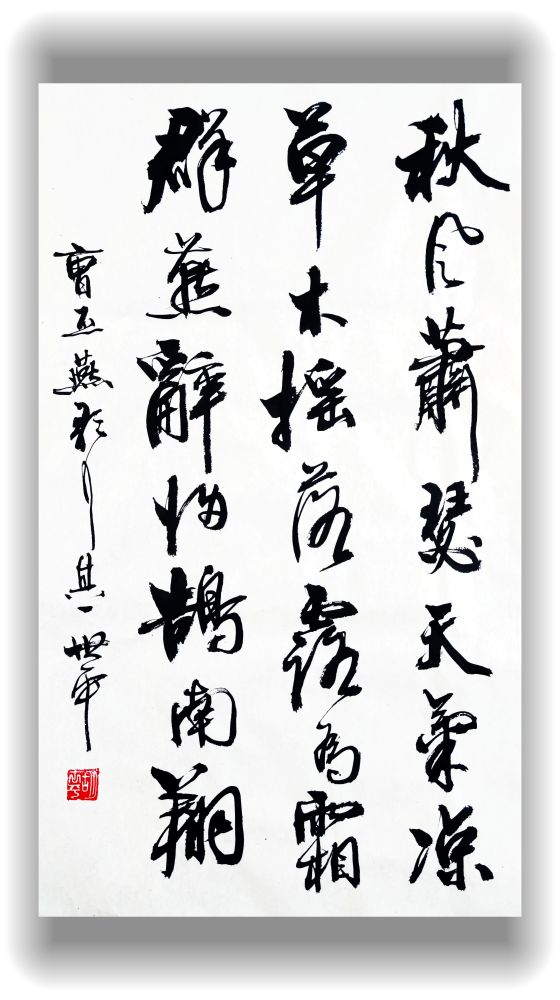 秋风蕭瑟天氣凉
草木摇落露為霜
群燕辭归鵠南翔
曹丕燕歌行其一世